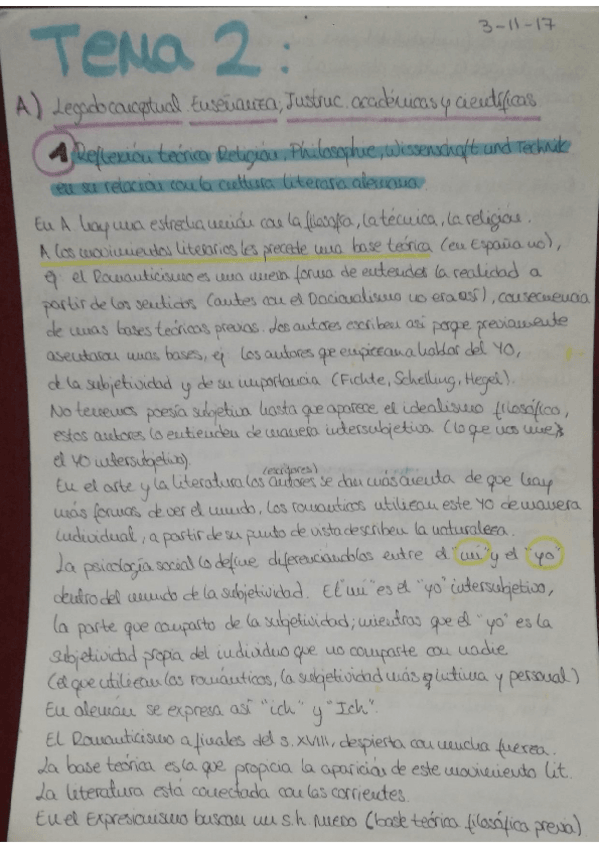 3-11-17
TEMA 2:
A) Legado conceptual Enseñanza, Instruc. académicas y científicas
1 Reflexión teórica Religión, Philosophie, Wissenschaft und Technik
en su relación con la cultura literaria alemana.
En A hay una estrecha unión con la filosofía, la técnica, la religión.
A los movimientos literarios les precede una base teórica (en España no),
ej el Romanticismo es una nueva forma de entender la realidad a
partir de los sentidos (antes con el Racionalismo no era así), consecuencia
de unas bases teóricas previas. Los autores escriben así porque previamente
asentaron unas bases, ej los autores que empiezan a hablar del YO,
de la subjetividad y de su importancia (Fichte, Schelling, Hegel).
No tenemos poesía subjetiva hasta que aparece el idealismo filosófico,
estos autores lo entienden de manera intersubjetiva (lo que nos une es
el YO intersubjetivo).
En el arte y la literatura los autores (escritores) se dan más cuenta de que hay
más formas de ver el mundo, los románticos utilizan este YO de manera
individual, a partir de su punto de vista describen la naturaleza.
La psicología social lo define diferenciándolos entre el "mi" y el "yo"
dentro del mundo de la subjetividad. El "mi" es el "yo" intersubjetivo,
la parte que comparto de la subjetividad; mientras que el "yo" es la
subjetividad propia del individuo que no comparte con nadie
(el que utilizan los románticos, la subjetividad más íntima y personal)
En alemán se expresa así "ich" y "Ich".
El Romanticismo a finales del s. XVIII, despierta con mucha fuerza.
La base teórica es la que propicia la aparición de este movimiento lit.
La literatura está conectada con las corrientes.
En el Expresionismo buscan un s.h. nuevo (base teórica filosófica previa).